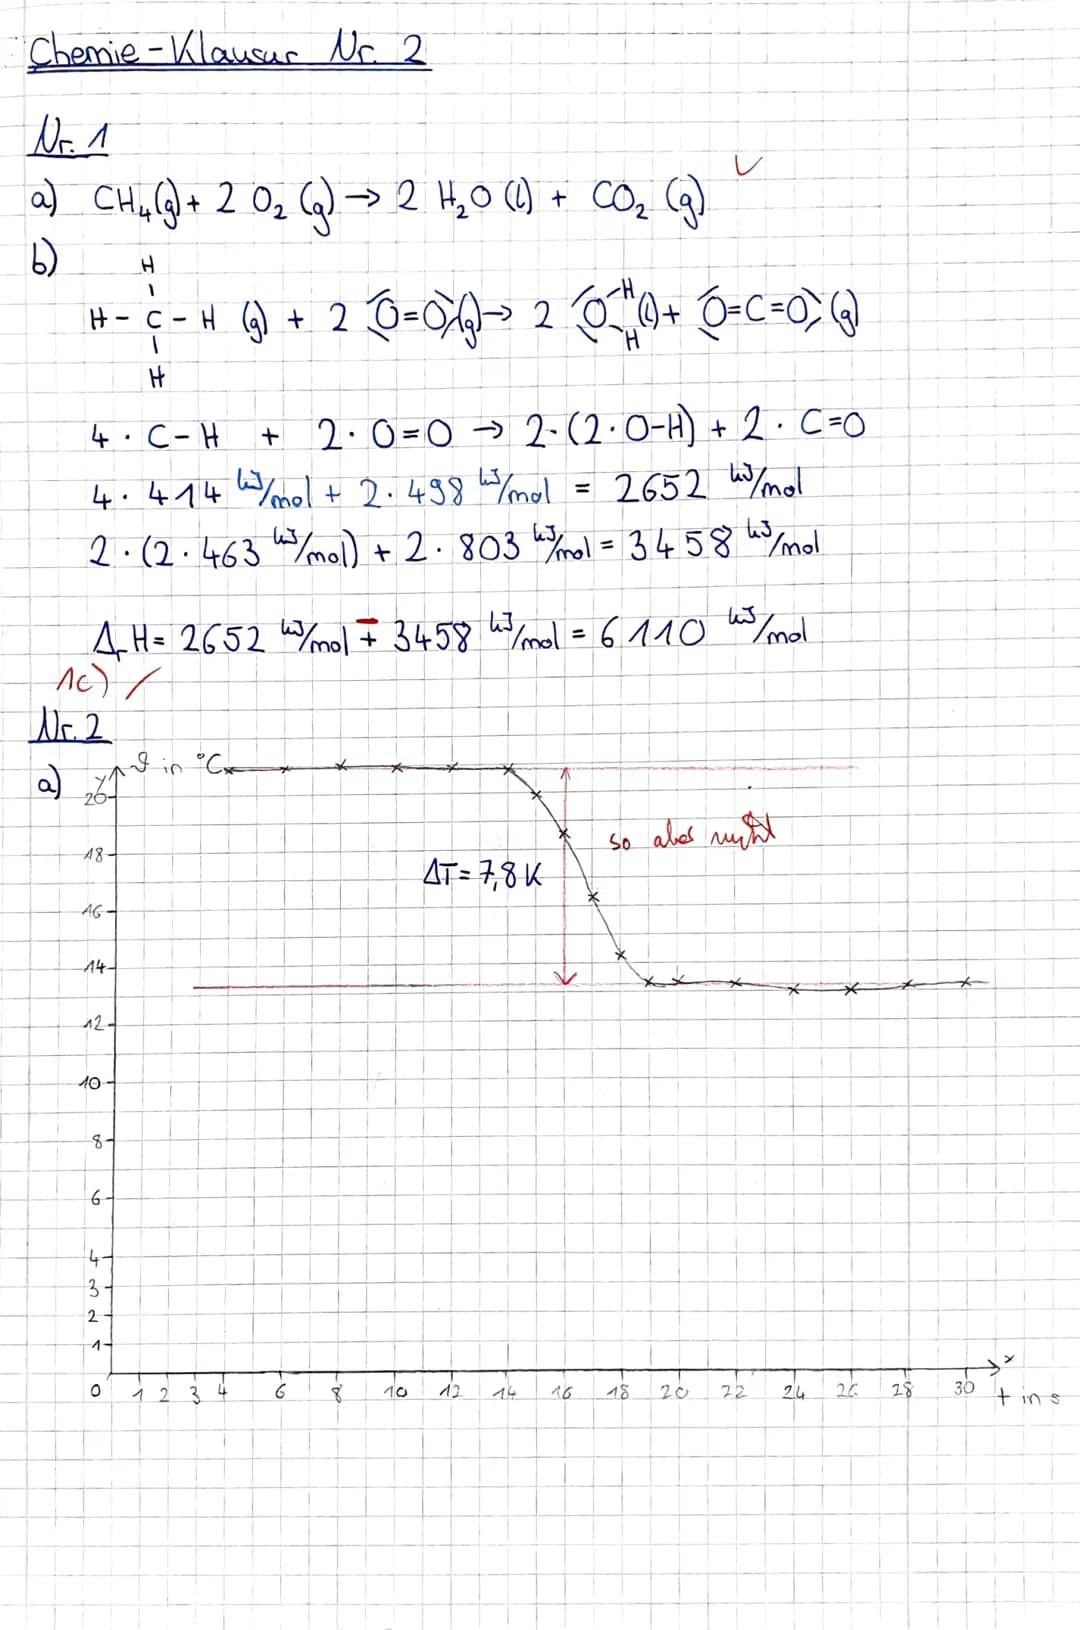 Chemie-Klausur Nr. 2
Nr. 1
a) CH₄(g) + 2 O₂ (g) → 2 H₂O (l) + CO₂ (g) ✓
b)
H
H - C - H (g) + 2 O=O (g) → 2 O-H (l) + O=C=O (g)
H
H
4 · C-H + 2 · O=O → 2·(2·O-H) + 2 · C=O
4 · 414 kJ/mol + 2 · 498 kJ/mol = 2652 kJ/mol
2 · (2 · 463 kJ/mol) + 2 · 803 kJ/mol = 3458 kJ/mol
ΔrH = 2652 kJ/mol + 3458 kJ/mol = 6110 kJ/mol
−
1c) /
Nr. 2
a) ϑ in °C
20
18
so aber nicht
ΔT = 7,8 K
16
14
12
10
8
6
4
3
2
1
0 1 2 3 4 6 8 10 12 14 16 18 20 22 24 26 28 30
t in s